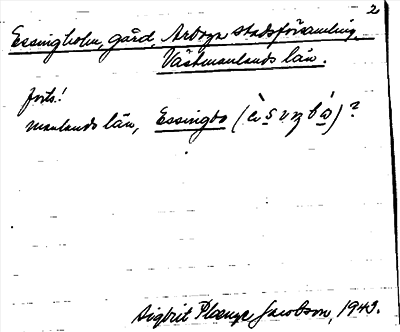 2
Essingholm, gård, Arboga stadsförsamling,
Västmanlands län.
forts!
manlands län, Essingbo ( )?
Sigbrit Plænge Jacobson, 1943.